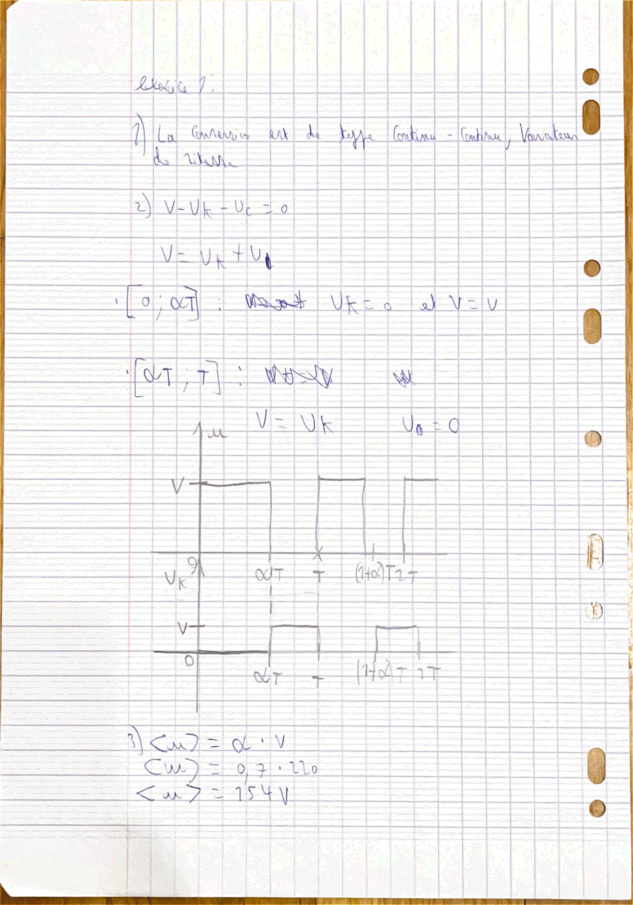 Exercice 1:
1) La conversion est de type Continu - Continu, Variateur
de vitesse
2) V - UK - Uc = 0
V = UK + U
[0; αT] : UK = 0 et V = U
[αT, T] :
V = UK U0 = 0
u
V
0 αT T (1+α)T 2T
UK
V
0
αT T (1+α)T 2T
3) <u> = α · V
<u> = 0,7 · 220
<u> = 154 V